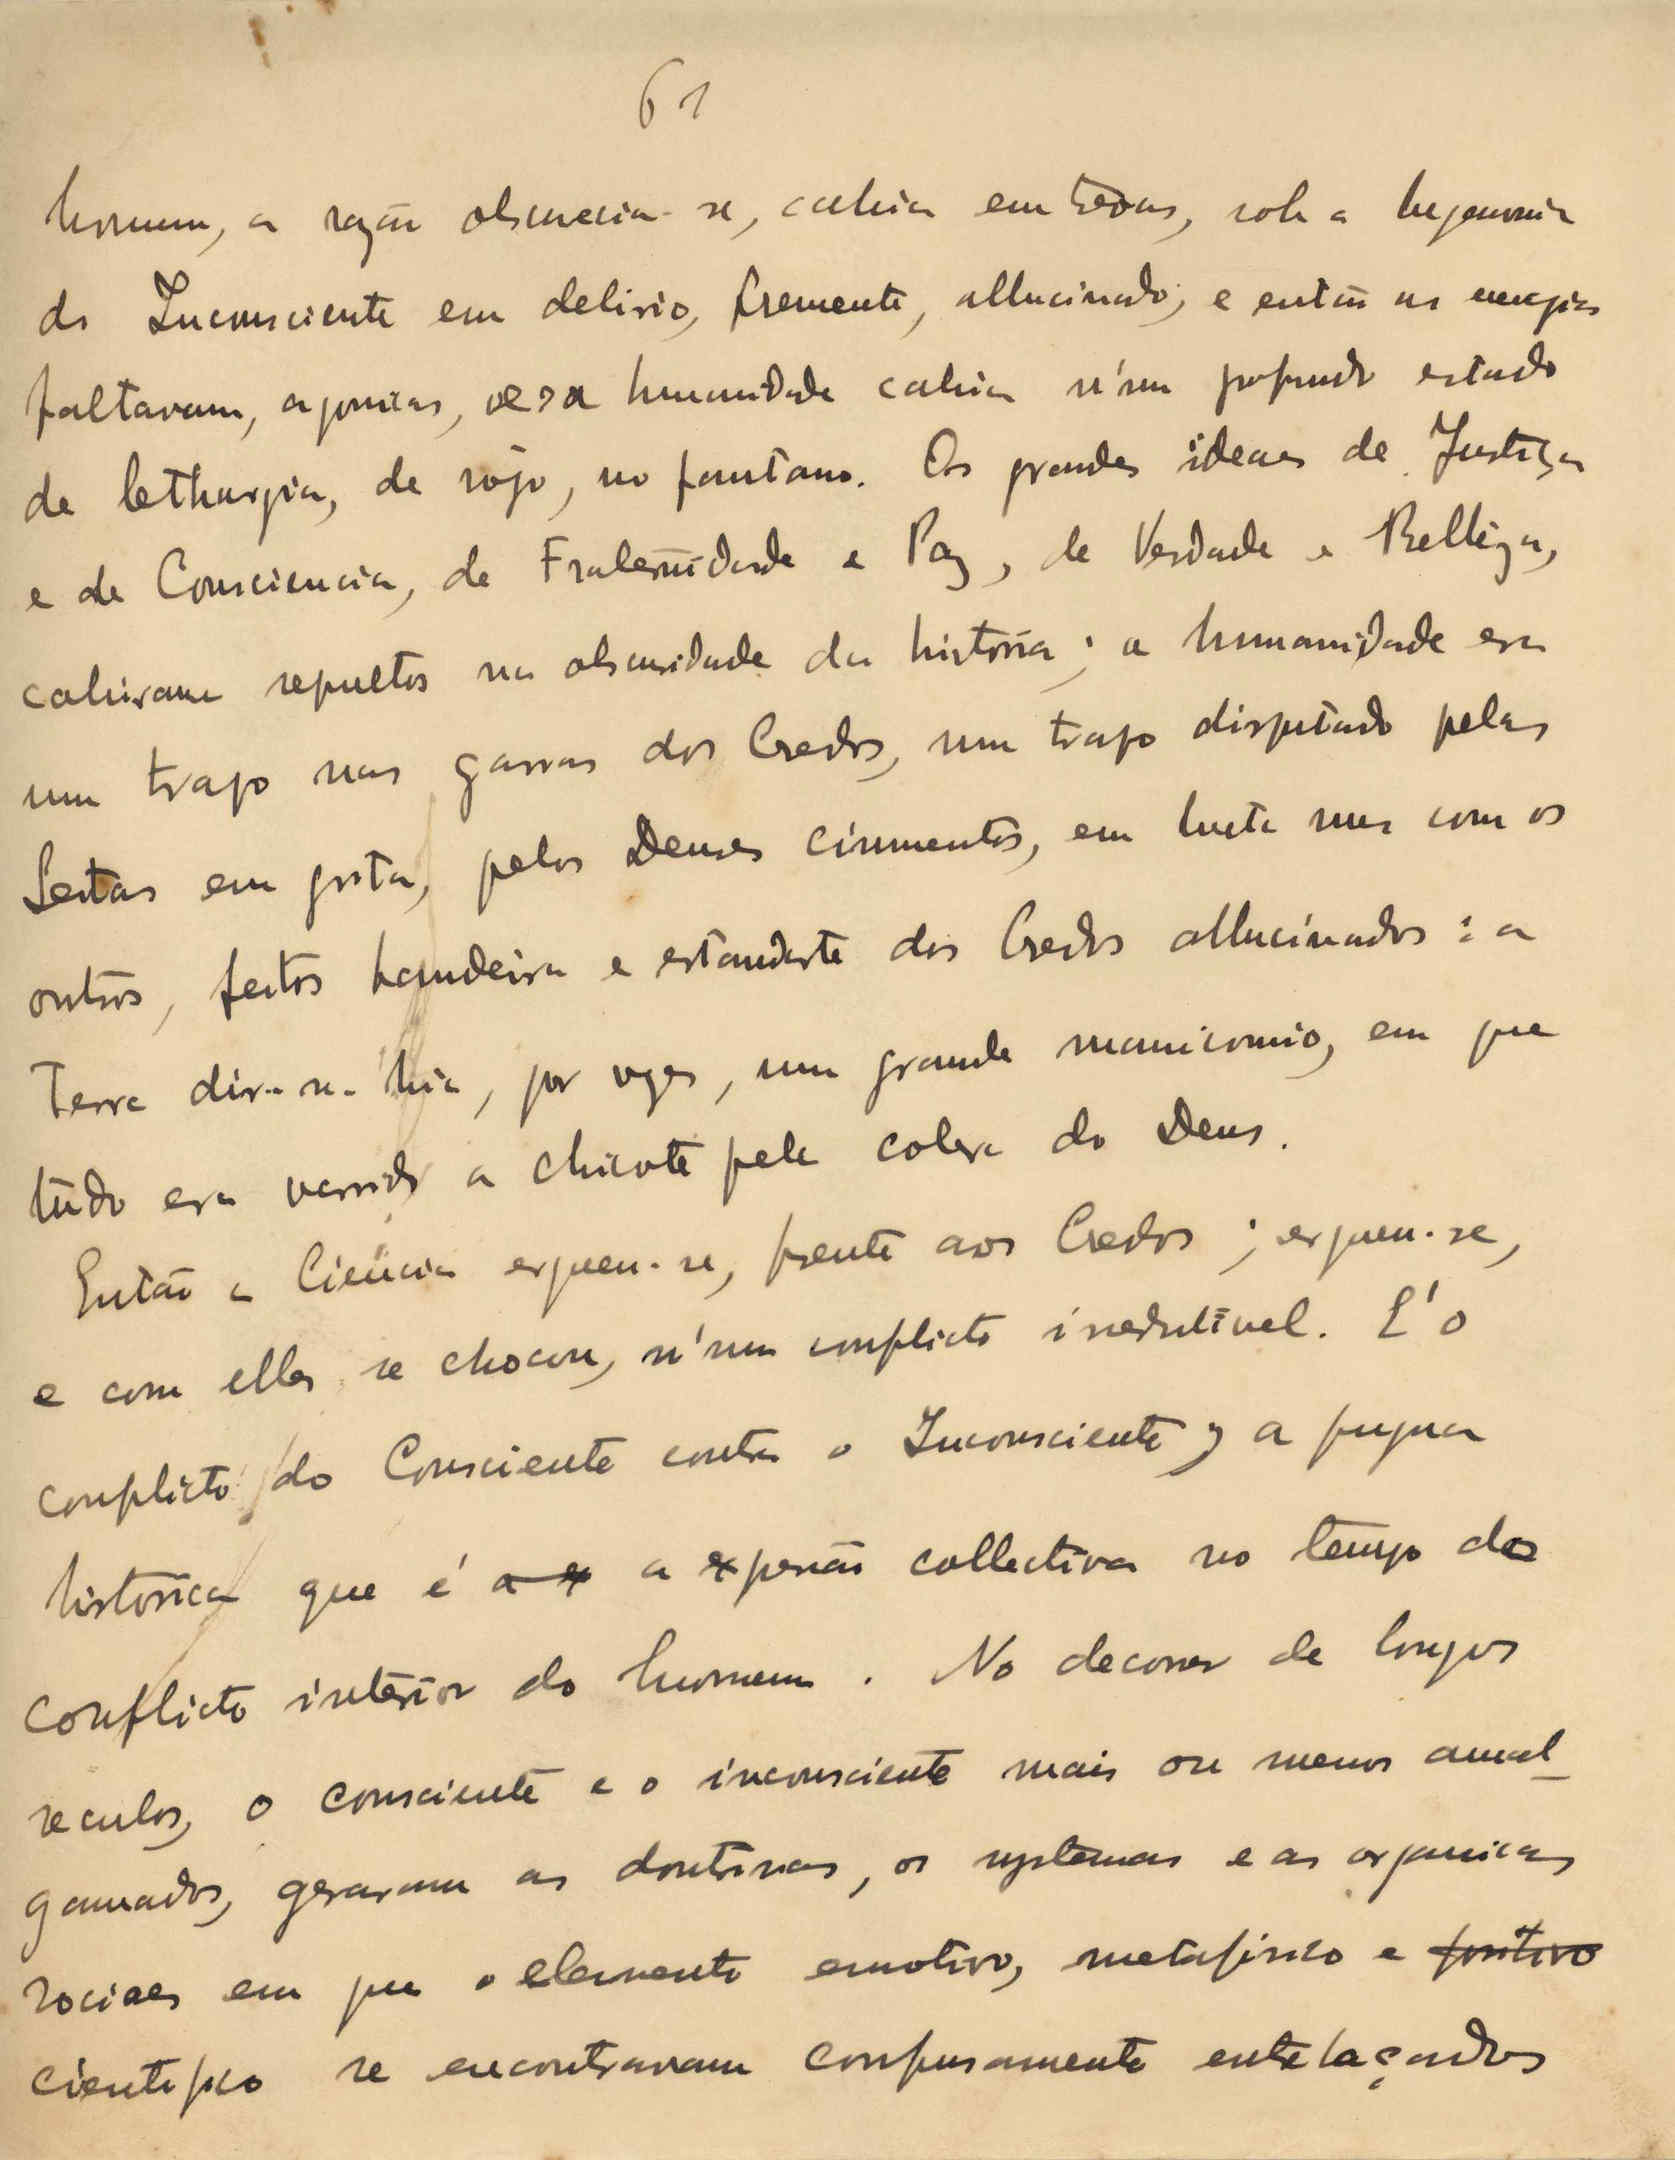 61
homem, a razão obscurecia-se, cahia em trevas, sob a hegemonia
do Inconsciente em delirio, fremente, allucinado; e então as energias
faltavam, agonicas, e a humanidade cahia n'um profundo estado
de lethargia, de rôjo, no pantano. Os grandes ideaes de Justiça
e de Consciencia, de Fraternidade e Paz, de Verdade e Belleza,
cahiram sepultos na obscuridade da historia; a humanidade era
um trapo nas garras dos Credos, um trapo disputado pelas
Seitas em grita, pelos Deuses ciumentos, em lucta uns com os
outros, feitos bandeira e estandarte dos Credos allucinados: a
Terra dir-se-hia, por vezes, um grande manicomio, em que
tudo era varrido a chicote pela colera do Deus.
Então a Ciencia ergueu-se, frente aos Credos; ergueu-se,
e com elles se chocou, n'um conflicto irredutivel. E' o
conflicto do Consciente contra o Inconsciente; a pugna
historica que é a x a expensão collectiva no tempo do
conflicto interior do homem. No decorrer de longos
seculos, o consciente e o inconsciente mais ou menos amal-
gamados, geraram as doutrinas, os systemas e as organicas
sociaes em que o elemento emotivo, metafisico e positivo
cientifico se encontravam confusamente entrelaçados